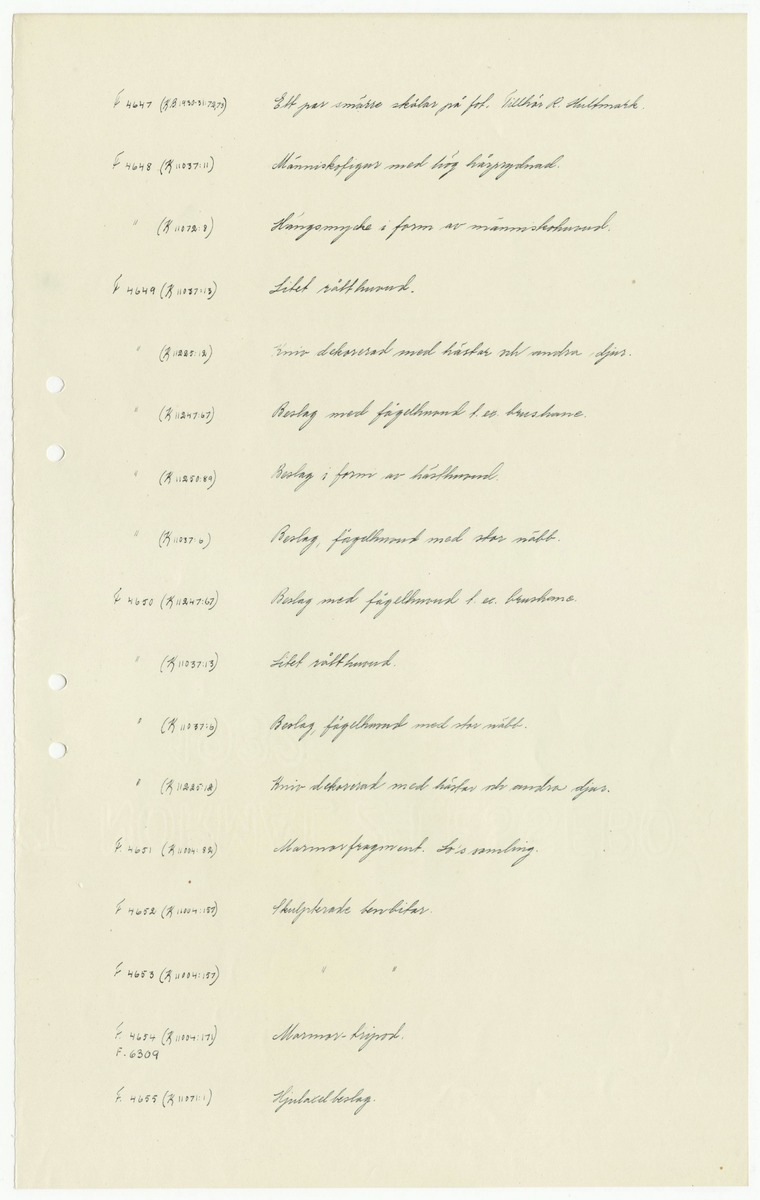 F 4647 (KB 1930-31:72,73) Ett par smärre skålar på fot. Tillhör R. Hultmark.
F 4648 (K 11037:11) Människofigur med hög hårprydnad.
" (K 11072:8) Hängsmycke i form av människohuvud.
F 4649 (K 11037:13) Litet rålthuvud.
" (K 11225:12) Kniv dekorerad med hästar och andra djur.
" (K 11247:67) Beslag med fågelhuvud t. ex. brushane.
" (K 11250:89) Beslag i form av hästhuvud.
" (K 11037:6) Beslag, fågelhuvud med stor näbb.
F 4650 (K 11247:67) Beslag med fågelhuvud t. ex. brushane.
" (K 11037:13) Litet rålthuvud.
" (K 11037:6) Beslag, fågelhuvud med stor näbb.
" (K 11225:12) Kniv dekorerad med hästar och andra djur.
F. 4651 (K 11004:82) Marmorfragment. Lo's samling.
F 4652 (K 11004:157) Skulpterade benbitar.
F 4653 (K 11004:157) " "
F. 4654 (K 11004:171) Marmor-tripod.
F. 6309
F. 4655 (K 11071:1) Hjulaxelbeslag.